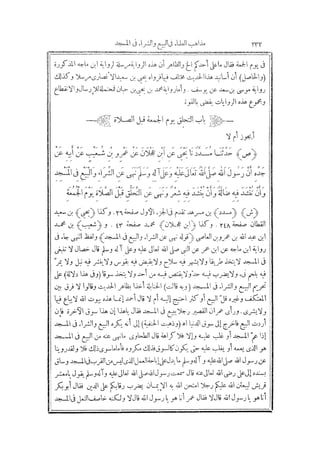 ٢٣٢ مذاهب العلماء فى البيع والشراء فى المسجد
فى يوم الجمعة فقال ماعلى أحدكم الخ والظاهر أن هذه الرواية مرسلة لرواية ابن ماجه المذكورة
(والحاصل) أن أسانيد هذا الحديث مختلف فيها فرواه يحيى بن سعيد الأنصارى مرسلا وكذلك
رواية موسى بن سعد عن يوسف. وأما رواية محمد بن يحيى بن حبان المتصلة للإرسال والانقطاع
ومجموع هذه الروايات يقضى بالقبول
باب التحلق يوم الجمعة قبل الصلاة
أيجوز أم لا
(ص) حَدَّثَنَا مُسَدَّدٌ نَا يَحْيَى عَنِ ابْنِ عَجْلَانَ عَنْ عَمْرِو بْنِ شُعَيْبٍ عَنْ أَبِيهِ عَنْ
جَدِّهِ أَنَّ رَسُولَ اللهِ صَلَّى اللهُ تَعَالَى عَلَيْهِ وَعَلَى آلِهِ وَسَلَّمَ نَهَى عَنِ الشِّرَاءِ وَالْبَيْعِ فِي الْمَسْجِدِ
وَأَنْ تُنْشَدَ فِيهِ ضَالَّةٌ وَأَنْ يُنْشَدَ فِيهِ شِعْرٌ وَنَهَى عَنِ التَّحَلُّقِ قَبْلَ الصَّلَاةِ يَوْمَ الْجُمُعَةِ
(ش) (مسدد) بن مسرهد تقدم فى الجزء الأول صفحة ٢٩. وكذا (يحيى) بن سعيد
القطان صفحة ٢٤٨ وكذا (ابن عجلان) محمد صفحة ٤٣. و (شعيب) بن محمد
ابن عبد الله بن عمرو بن العاصى (قوله نهى عن الشراء والبيع فى المسجد) ولفظ النهى جاء فى
رواية ابن ماجه عن ابن عمر عن النبى صلى الله تعالى عليه وعلى آله وسلم قال خصال لا تنبغى
فى المسجد لا يتخذ طريقا ولا يشهر فيه سلاح ولا ينبض فيه بقوس ولا ينثر فيه نبل ولا يمرّ
فيه بلحم نىء ولا يضرب فيه حد ولا يقتص فيه من أحد ولا يتخذ سوقا (وفى هذا دلالة) على
تحريم البيع والشراء فى المسجد (وبه قالت) الحنابلة أخذا بظاهر الحديث وقالوا لا فرق بين
المعتكف وغيره قلّ البيع أو كثر احتيج إليه أم لا قال أحمد إنما هذه بيوت الله لا يباع فيها
ولا يشترى. ورأى عمران القصير رجلا يبيع فى المسجد فقال ياهذا إن هذا سوق الآخرة فإن
أردت البيع فاخرج إلى سوق الدنيا اه (وذهبت الحنفية) إلى أنه يكره البيع والشراء فى المسجد
إذا عمّ المسجد أو غلب عليه وإلا فلا كراهة قال الطحاوى مانهى عنه من البيع فى المسجد
هو الذى يعمه أو يغلب عليه حتى يكون كالسوق فذلك مكروه فأما ماسوى ذلك فلا ولقد روينا
عن رسول الله صلى الله عليه وآله وسلم مايدل على إباحة العمل الذى ليس من القرب فى المسجد وساق
بسنده إلى على رضى الله تعالى عنه قال سمعت رسول الله صلى الله تعالى عليه وآله وسلم يقول يامعشر
قريش ليبعثن الله عليكم رجلا امتحن الله به الإيمان يضرب رقابكم على الدين فقال أبوبكر
أنا هو يارسول الله قال لا فقال عمر أنا هو يارسول الله قال لا ولكنه خاصف النعل فى المسجد